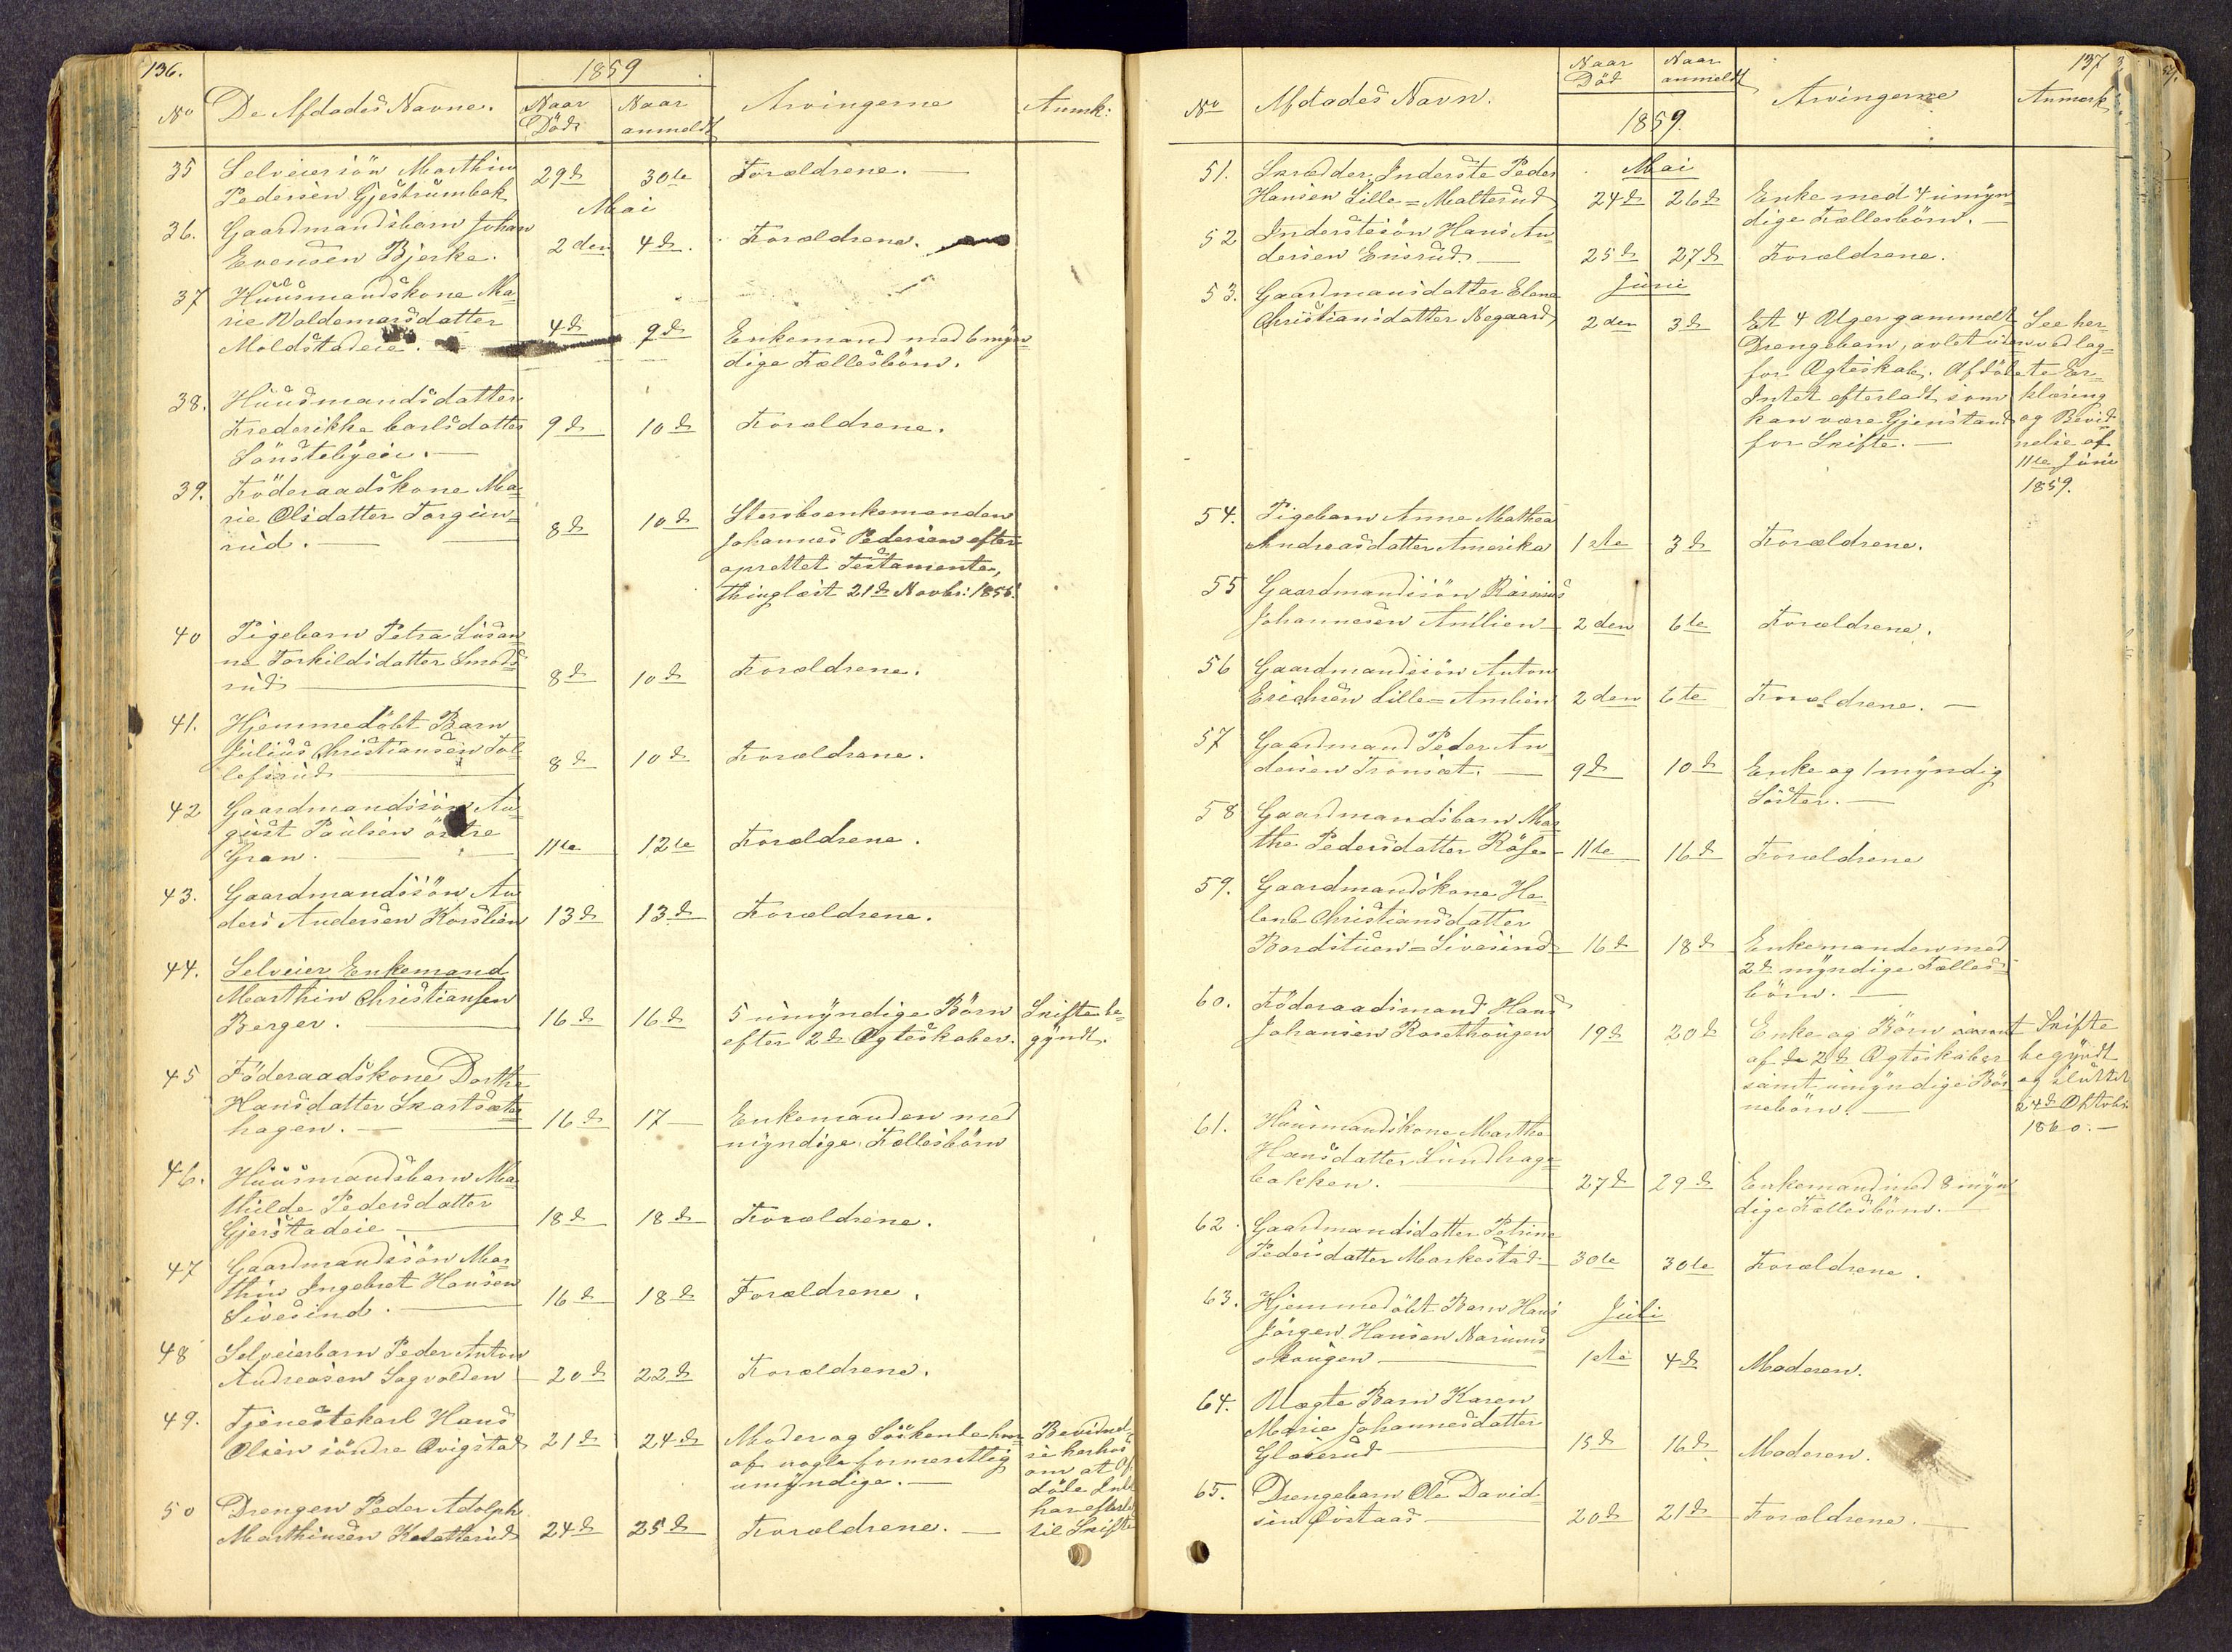 136.
1859
No De Afdødes Navne. Naar Död Naar anmeldt Arvingerne Anmk:
35 Selveiersön Marthin
Pedersen Gjestrumbak 29de 30te Forældrene.
Mai
36. Gaardmandsbarn Johan
Evensen Bjerke. 2den 4de. Forældrene.
37 Huusmandskone Ma-
rie Waldemarsdatter 4de 9de Enkemand med 6 myn-
Moldstadeie. dige Fællesbörn.
38. Huusmandsdatter
Frederikke Carlsdatter 9de 10de Forældrene.
Sönstebyeie.
39. Föderaadskone Ma-
rie Olsdatter Torgun- 8de 10de Sterboenkemanden
rud. Johannes Pedersen efter
oprettet Testamente,
thinglæst 21de Novbr: 1855.
40 Pigebarn Petra Susan-
ne Torkildsdatter Smeds-
rud 8de 10de Forældrene.
41. Hjemmedöbt Barn
Julius Christiansen Tol-
lefsrud 8de 10de Forældrene.
42 Gaardmandssön Au-
gust Paulsen östre
Gran. 11te 12te Forældrene.
43. Gaardmandssön An-
ders Andersen Korslien 13de 13de Forældrene.
44. Selveier Enkemand
Marthin Christiansen
Berger. 16de 16de 5 umyndige Börn Skifte be-
efter 2de Ægteskaber. gyndt.
45 Föderaadskone Dorthe
Hansdatter Skartsæter-
hagen. 16de 17 Enkemanden med
myndige Fællesbörn
46. Huusmandsbarn Ma-
thilde Pedersdatter
Gjerstadeie 18de 18de Forældrene.
47 Gaardmandssön Mar-
thin Ingebret Hansen
Sivesind. 16de 18de Forældrene.
48 Selveierbarn Peder Anton
Andreasen Sagvolden 20de 22de Forældrene.
49. Tjenestekarl Hans
Olsen söndre Qvigstad 21de 24de Moder og Söskende hvor- Bevidnel-
af nogle formentlig se herhos
umyndige. om at Af-
döde Intet
50 Drengen Peder Adolph har efterladt
Marthinsen Kalatterud 24de 25de Forældrene. til Skifte
137
No Afdødes Navn. Naar Död Naar anmeldt Arvingerne Anmærk
1859.
51. Skrædder Inderste Peder Mai
Hansen Lille=Malterud 24de 26de Enke med 4 umyn-
dige Fællesbörn.
52 Inderstesön Hans An-
dersen Ensrud. 25de 27de Forældrene.
53. Gaardmandsdatter Elene Juni
Christiansdatter Negaard 2den 3de Et 4 Uger gammelt See her-
Drengebarn, avlet uden vedlag-
for Ægteskab. Afdöde te Er-
Intet efterladt som klæring
kan være Gjenstand og Bevid-
for Skifte. nelse af
11te Juni
1859.
54. Pigebarn Anne Mathea
Andreasdatter Amerika 1ste 3de Forældrene.
55 Gaardmandssön Rasmus
Johannesen Amlien 2den 6te Forældrene.
56 Gaardmandssön Anton
Erichsen Lille=Amlien 2den 6te Forældrene.
57 Gaardmand Peder An-
dersen Tronsæt. 9de 10de Enke og 1 myndig
Söster.
58 Gaardmandsbarn Mar-
the Pedersdatter Röise 11te 16de Forældrene
59. Gaardmandskone He-
lene Christiansdatter
Bardstuen=Sivesind 16de 18de Enkemanden med
2de myndige Fælles-
börn.
60. Föderaadsmand Hans
Johansen Rosethougen 19de 20de Enke og Börn samt Skifte
af de 2de Ægteskaber begyndt
samt umyndige Bör- og sluttet
nebörn. 24de Oktobr.
1860.
61. Huusmandskone Marthe
Hansdatter Sundhage-
bakken. 27de 29de Enkemand med 8 myn-
dige Fællesbörn.
62. Gaardmandsdatter Petrine
Pedersdatter Markestad 30te 30te Forældrene.
63. Hjemmedöbt Barn Hans Juli
Jörgen Hansen Narums-
skougen 1ste 4de Moderen.
64. Uægte Barn Karen
Marie Johannesdatter
Glaserud 15de 16de Moderen.
65. Drengebarn Ole David-
sen Qvistaas 20de 21de Forældrene.